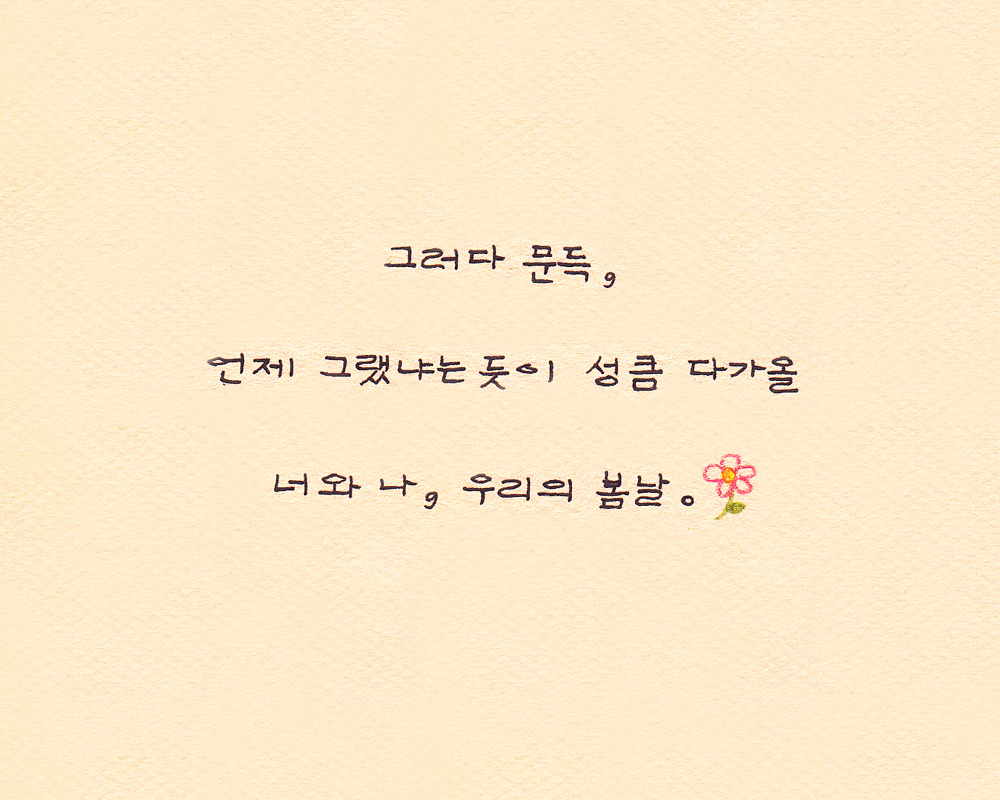 그러다 문득,
언제 그랬냐는 듯이 성큼 다가올
너와 나, 우리의 봄날。